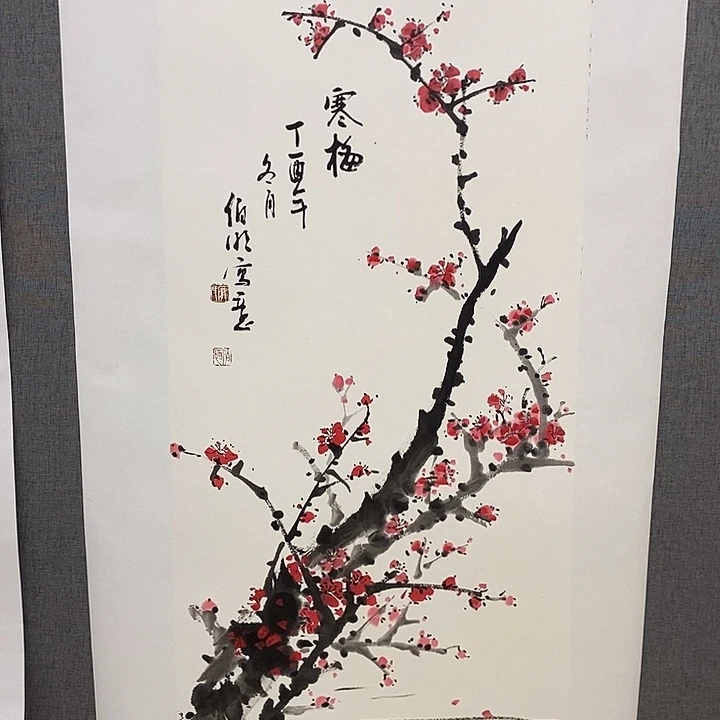 寒梅
丁酉年
冬月
伯明写意